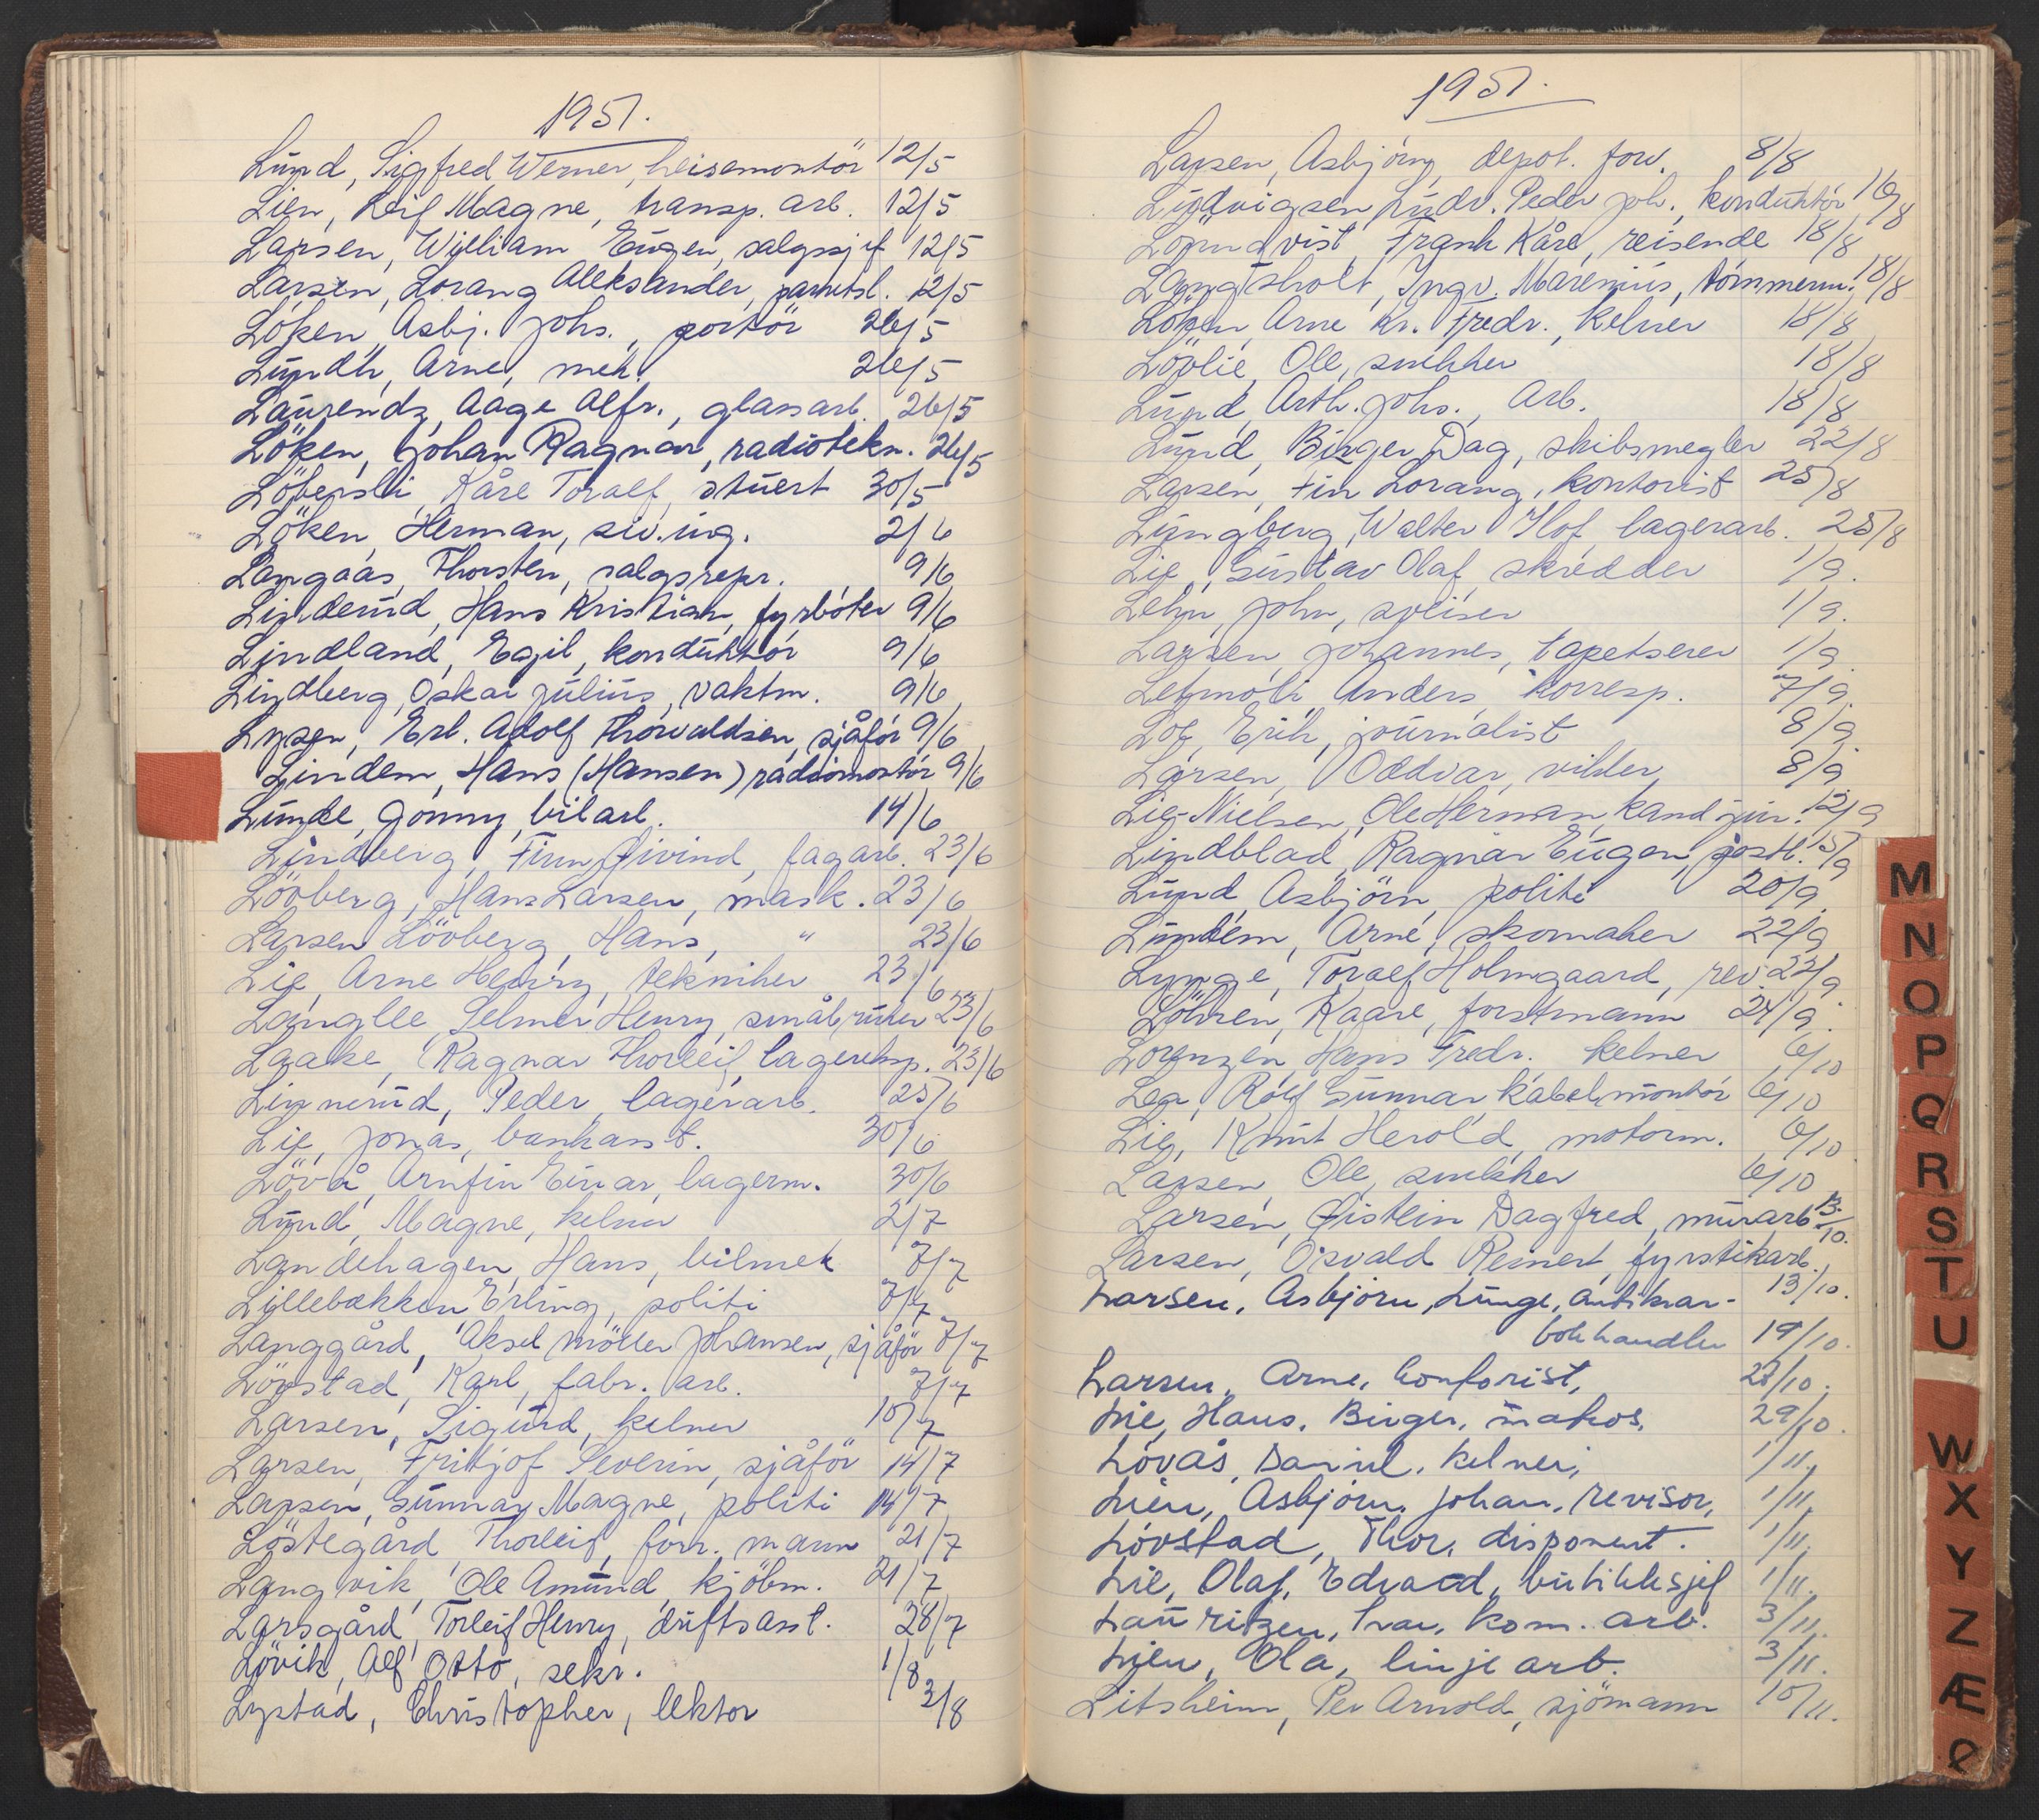 1951.
Lund, Sigfred Werner, heisemontör 12/5
Lien, Leif Magne, transp. arb. 12/5
Larsen, Wylliam Eugen, salgssjef 12/5
Larsen, Lorang Aleksander, 12/5
Löken, Asbj. Johs., portör 26/5
Lundh, Arne, mek. 26/5
Laurendz, Aage Alfr., glassarb. 26/5
Löken, Johan Ragnar, radiotekn. 26/5
Löbersli, Kåre Toralf, stuert 30/5
Löken, Herman, siv.ing. 2/6
Langaas, Thorsten, salgsrepr. 9/6
Linderud, Hans Kristian, fyrböter 9/6
Lindland, Egil, konduktör 9/6
Lindberg, Oskar Julius, vaktm. 9/6
Lysen, Erl. Adolf Thorvaldsen, sjåför 9/6
Lindem, Hans (Hansen) radiomontör 9/6
Lunde, Jonny, bilarb. 14/6
Lindberg, Finn Øivind, fagarb. 23/6
Lövberg, Hans Larsen, mask. 23/6
Larsen Lövberg, Hans, " 23/6
Lie, Arne Henry, tekniker 23/6
Langlee, Selmer Henry, småbruker 23/6
Laake, Ragnar Thorleif, lagereksp. 23/6
Linnerud, Peder, lagerarb. 25/6
Lie, Jonas, bankasst. 30/6
Lövå, Arnfin Einar, lagerm. 30/6
Lund, Magne, kelner 2/7
Landehagen, Hans, bilmek 7/7
Lillebækken, Erling, politi 7/7
Langgård, Aksel Möller Johansen, sjåför 7/7
Lövstad, Karl, fabr. arb. 7/7
Larsen, Sigurd, kelner 10/7
Larsen, Fritjof Severin, sjåför 14/7
Larsen, Gunnar Magne, politi 14/7
Löstegård, Thorleif, forr. mann 21/7
Langvik, Ole Amund, kjöbm. 21/7
Larsgård, Torleif Henry, driftsasst. 28/7
Lövik, Alf Otto, sekr. 1/8
Lystad, Christopher, lektor 3/8
1951.
Larsen, Asbjörn, depot. forv. 8/8
Ludvigsen, Ludv. Peder Joh., konduktör 16/8
Frank Kåre, reisende 18/8
Langsholt, Ingv. Marenius, tömmerm. 18/8
Löken, Arne Kr. Fredr., kelner 18/8
Lövlie, Ole, snekker 18/8
Lund, Arth. Johs., Arb. 18/8
Lund, Birger Dag, skibsmegler 22/8
Larsen, Fin Lorang, kontorist 25/8
Ljungberg, Walter Olof, lagerarb. 25/8
Lie, Gustav Olaf, skredder 1/9.
Lehn, John, sveiser 1/9.
Larsen, Johannes, tapetserer 1/9.
Anders, korresp. 7/9.
Erik, journalist 8/9.
Larsen, Oddvar, vikler 8/9.
Lie-Nielsen, Ole Herman, kand. jur. 12/9
Lindblad, Ragnar Eugen, postb. 15/9
Lund, Asbjörn, politi 20/9.
Lundem, Arne, skomaker 22/9
Lynge, Toralf Holmgaard, rev. 22/9
Löhren, Kaare, forstmann 24/9.
Lorenzen, Hans Fredr. kelner 6/10
Lea, Rolf Gunnar, kabelmontör 6/10
Lie, Knut Herold, motorm. 6/10
Larsen, Ole, snekker 6/10
Larsen, Øistein Dagfred, murarb. 13/10.
Larsen, Osvald Reinert, fyrstikarb.
13/10.
Larsen, Asbjörn, Lunge, antikvar-
bokhandler 19/10.
Larsen, Arne, konforist, 23/10.
Lie, Hans, Birger, 29/10.
Lövås, Daniel, kelner, 1/11.
Lien, Asbjörn, Johan, revisor, 1/11.
Lövstad, Thor, disponent. 1/11.
Lie, Olaf, Edvard, butikksjef 1/11.
Lauritzen, Ivar, kom. arb. 3/11.
Lien, Ola, linjearb. 3/11.
Litsheim, Per Arnold, sjömann 10/11.
M
N
O
P
Q
R
S
T
U
W
X
Y
Z
Æ